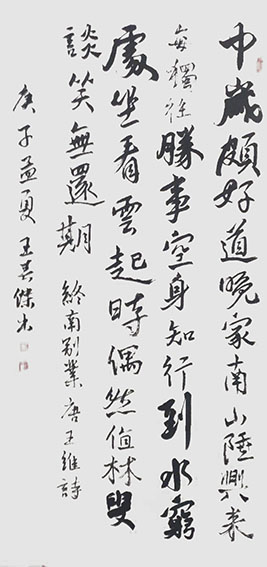 中歲頗好道晚家南山陲興來
每獨往勝事空身知行到水窮
處坐看雲起時偶然值林叟
談笑無還期 終南别業 唐王維詩
庚子孟夏王其傑书